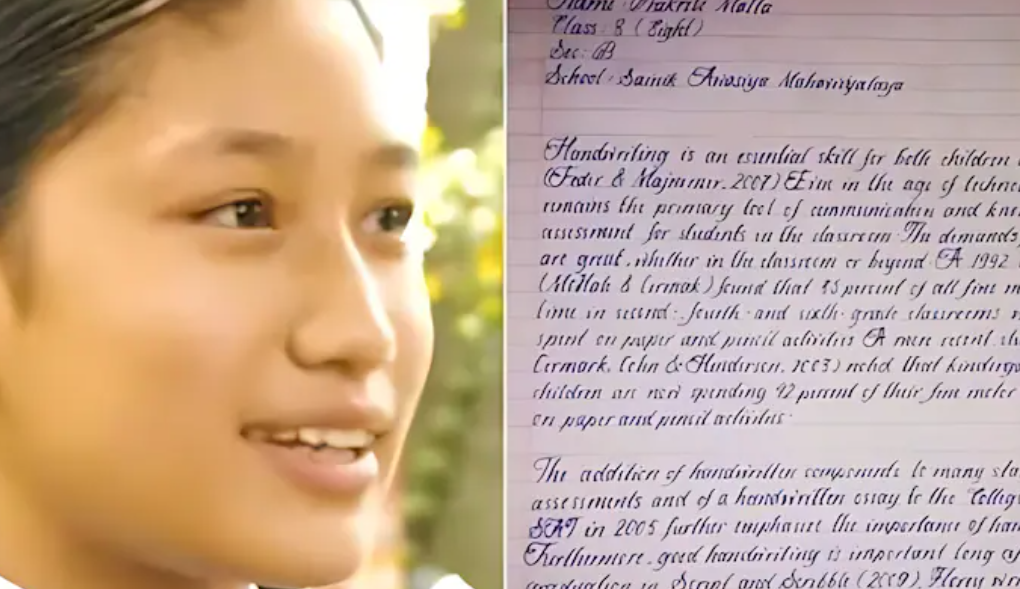 Name: Prakriti Malla
Class: 8 (Eight)
Sec: 'B'
School: Sainik Awasiya Mahavidyalaya
Handwriting is an essential skill for both children
(Feder & Majnemer, 2007) Even in the age of
remains the primary tool of communication and
assessment for students in the classroom. The demands
are great, whether in the classroom or beyond. A 1992
(McHale & Cermak) found that 85 percent of all fine
time in second-, fourth- and sixth-grade classrooms
spent on paper and pencil activities. A more recent
Cermak, Cohn & Henderson, 2003) noted that
children are now spending 42 percent of their fine motor
on paper and pencil activities.
The addition of handwritten components to many
assessments and of a handwritten essay to the
SAT in 2005 further emphasizes the importance of
Furthermore, good handwriting is important long
graduation in Script and Scribble (2009),